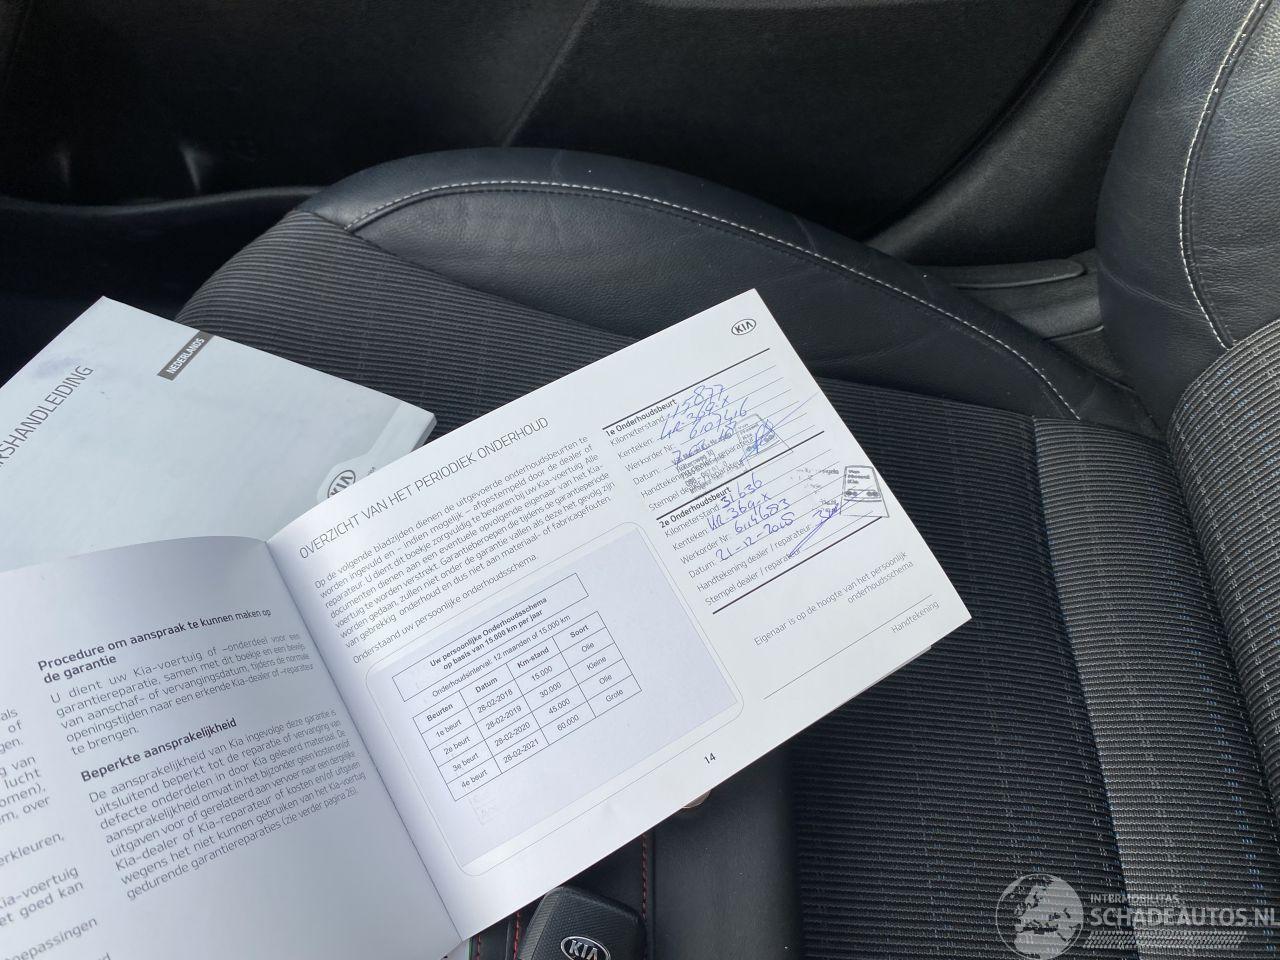 KSHANDLEIDING
NEDERLANDS
KIA
Procedure om aanspraak te kunnen maken op
de garantie
U dient uw Kia-voertuig of -onderdeel voor een
garantiereparatie, samen met dit boekje en een bewijs
van aanschaf- of vervangingsdatum, tijdens de normale
openingstijden naar een erkende Kia-dealer of -reparateur
te brengen.
Beperkte aansprakelijkheid
De aansprakelijkheid van Kia ingevolge deze garantie is
uitsluitend beperkt tot de reparatie of vervanging van
defecte onderdelen in door Kia geleverd materiaal. De
aansprakelijkheid omvat in het bijzonder geen kosten en/of
uitgaven voor of gerelateerd aan vervoer naar een dergelijke
Kia-dealer of Kia-reparateur of kosten en/of uitgaven
wegens het niet kunnen gebruiken van het Kia-voertuig
gedurende garantiereparaties (zie verder pagina 26).
als
of
gen.
van
lucht
omen),
m, over
erkleuren,
Kia-voertuig
et goed kan
oepassingen
OVERZICHT VAN HET PERIODIEK ONDERHOUD
Op de volgende bladzijden dienen de uitgevoerde onderhoudsbeurten te
worden ingevuld en – indien mogelijk – afgestempeld door de dealer of
reparateur. U dient dit boekje zorgvuldig te bewaren bij uw Kia-voertuig. Alle
documenten dienen aan een eventuele opvolgende eigenaar van het Kia-
voertuig te worden verstrekt. Garantieberoepen die tijdens de garantieperiode
worden gedaan, zullen niet onder de garantie vallen als deze het gevolg zijn
van gebrekkig onderhoud en dus niet aan materiaal- of fabricagefouten.
Onderstaand uw persoonlijke onderhoudsschema.
Uw persoonlijke Onderhoudsschema
op basis van 15.000 km per jaar
Onderhoudsinterval: 12 maanden of 15.000 km
Beurten Datum Km-stand Soort
1e beurt 28-02-2018 15.000 Olie
2e beurt 28-02-2019 30.000 Kleine
3e beurt 28-02-2020 45.000 Olie
4e beurt 28-02-2021 60.000 Grote
KIA
1e Onderhoudsbeurt
Kilometerstand: 15877
Kenteken: KR-369-X
Werkorder Nr: 6107416
Datum:
Handtekening dealer / reparateur:
Stempel dealer / reparateur
2e Onderhoudsbeurt
Kilometerstand: 31636
Kenteken: KR-369-X
Werkorder Nr: 6114683
Datum: 21-12-2018
Handtekening dealer / reparateur:
Stempel dealer / reparateur
Eigenaar is op de hoogte van het persoonlijk
onderhoudsschema
Handtekening
14
KIA
INTERMOBILITAS
SCHADEAUTOS.NL